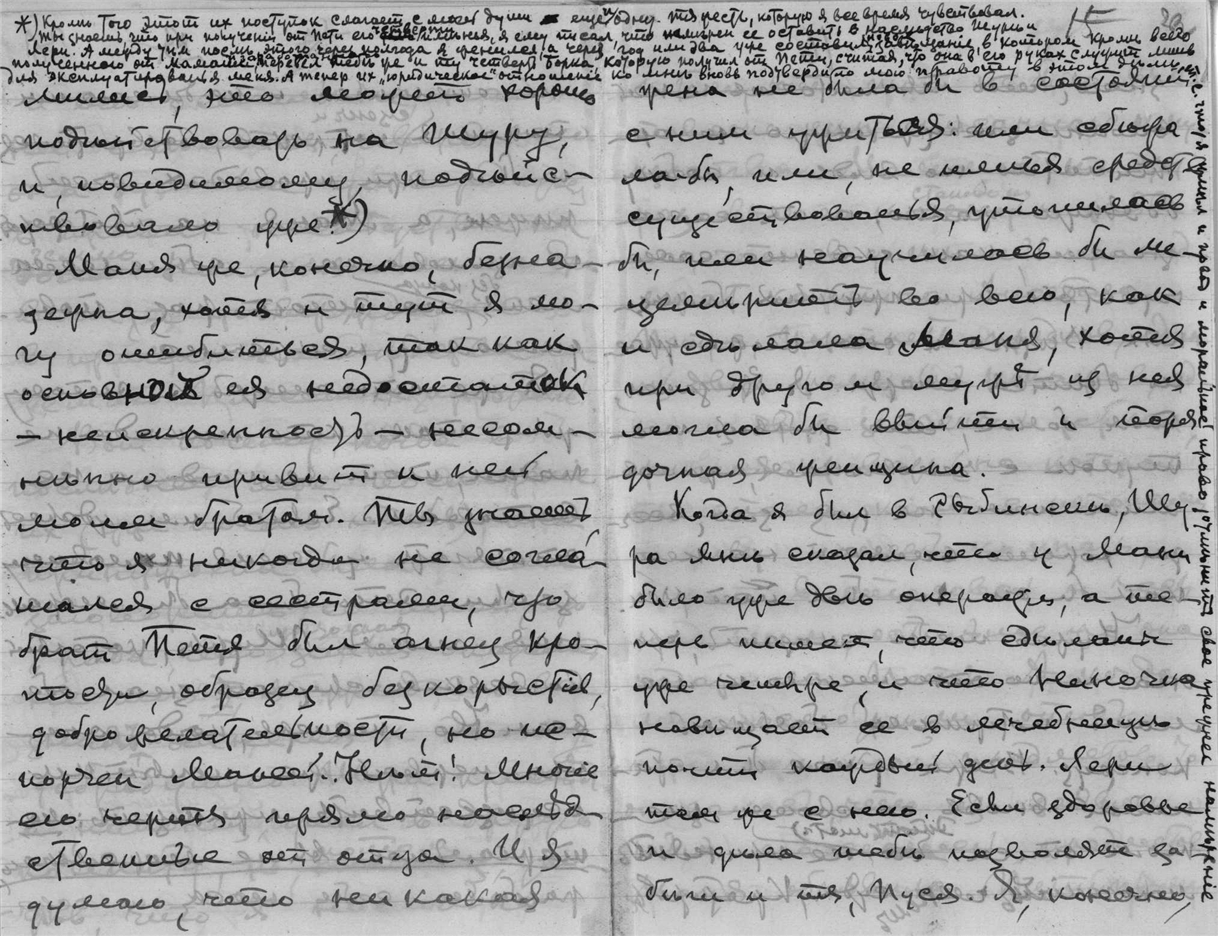 *) Кроме того этот их поступок слагает с моей души еще одну тяжесть, которую я все время чувствовал.
Ты знаешь что при получении от Пети его я ему писал что намерен ее оставить в наследство Шуры и
Лери. А между тем после этого через полгода я женился а через год или два уже составил завещание, в котором кроме всего
полученного от мамаши тебе же и ту четверть которую получил от Пети, считая, что она в его руках служит лишь
для эксплуатированья меня. А теперь их "юридическое" отношение ко мне вновь подтвердило мою правоту в этом деле, т.е.
что я умныл и право и моральное право отменить свое прежнее намерение
15
милией, это может хорошо
подействовать на Шуру,
и, повидимому, подейс-
твовало уже *)
Маня же, конечно, безна-
дежна, хотя и тут я мо-
гу ошибиться, так как
основной ея недостаток
– неискренность – несом-
ненно привит к ней
моим братом. Ты знаешь
что я никогда не согла-
шался с сестрами, что
брат Петя был агнец кро-
тости, образец безкорыстия,
доброжелательности, но ис-
порчен Маней. Нет! Многие
его черты прямо наслед-
ственные от отца. И я
думаю, что никакая
жена не была бы в состоянии
с ним ужиться: или сбежа
ла-бы, или, не имея средств
существованья, утопилась
бы, или научилась бы ли-
цемерить во всю, как
и сделала Маня, хотя
при другом муже из нея
могла бы выйти и поря
дочная женщина.
Когда я был в Рыбинске, Шу
ра мне сказал, что у Мани
было уже две операции, а те-
перь пишет, что сделали
уже четыре, и что Ниночка
навещает ее в лечебнице
почти каждый день. Лери
там же с нею. Если здоровье
и дела тебе позволят за
были и ты, Муся. Я, конечно,